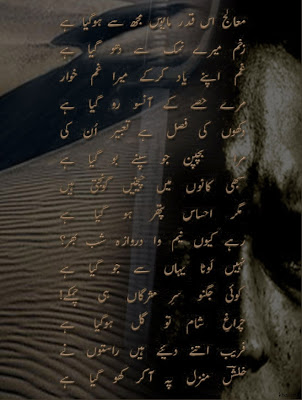 معالج اس قدر مایوس مجھ سے ہوگیا ہے
زخم میرے نمک سے دھو گیا ہے
غم اپنے یاد کرکے میرا غم خوار
مرے حصے کے آنسو رو گیا ہے
دکھوں کی فصل ہے تعبیر اُن کی
مرا بچپن جو سپنے بو گیا ہے
سبھی کانوں میں چیخیں گونجتی ہیں
مگر احساس پتھر ہو گیا ہے
رہے کیوں نیم وا دروازہ شب بھر؟
نہیں لوٹا یہاں سے جو گیا ہے
کوئی جگنو سرِ مژگاں ہی چمکا
چراغِ شام تو گل ہوگیا ہے
فریب اتنے دیئے ہیں راستوں نے
خلشؔ منزل پہ آکر کھو گیا ہے